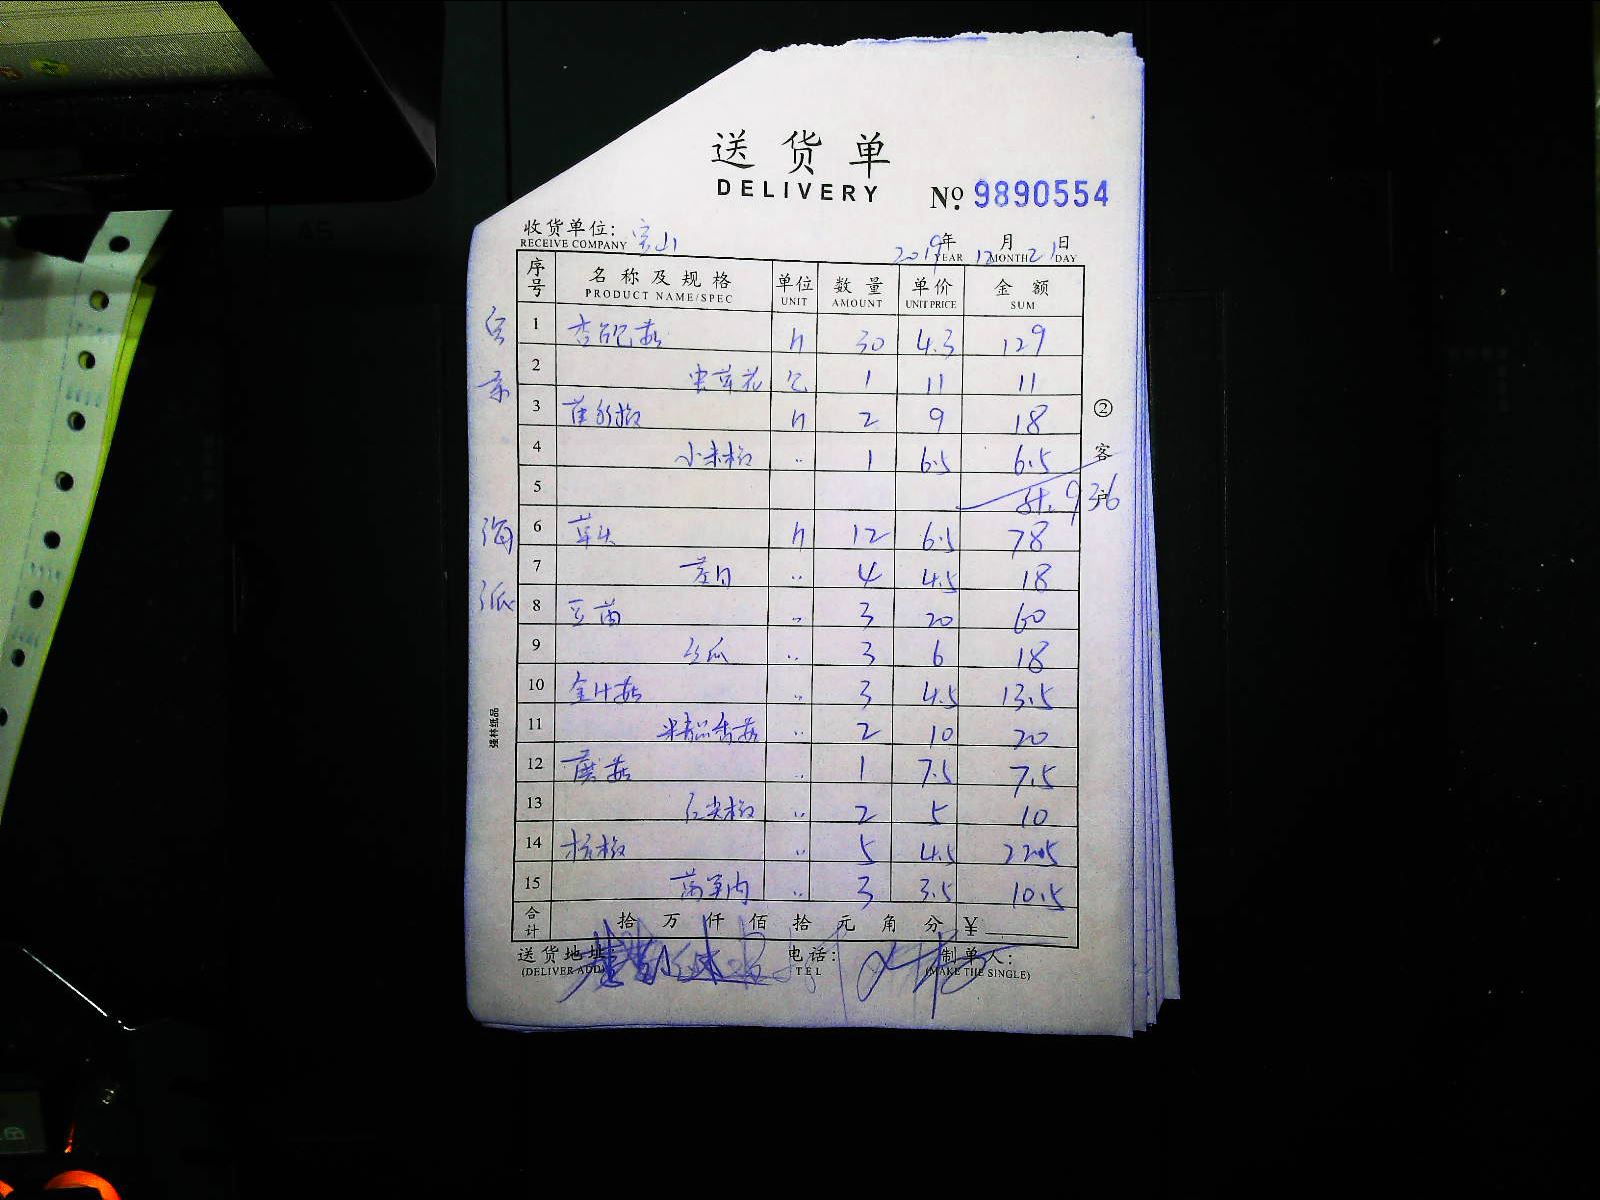 送货单
DELIVERY
No. 9890554
收货单位: 宝山
RECEIVE COMPANY
2019年 12月 21日
YEAR MONTH DAY
序号 名称及规格 单位 数量 单价 金额
PRODUCT NAME/SPEC UNIT AMOUNT UNIT PRICE SUM
1 杏鲍菇 斤 30 4.3 129
2 虫草花 包 1 11 11
3 斤 2 9 18
4 小米椒 〃 1 6.5 6.5
5 936
6 芋头 斤 12 6.5 78
7 〃 4 4.5 18
8 豆苗 〃 3 20 60
9 丝瓜 〃 3 6 18
10 金针菇 〃 3 4.5 13.5
11 精品香菇 〃 2 10 20
12 蘑菇 〃 1 7.5 7.5
13 红尖椒 〃 2 5 10
14 杭椒 〃 5 4.5 22.5
15 〃 3 3.5 10.5
合计 拾万仟佰拾元角分 ¥
送货地址: 电话: 制单人:
(DELIVER ADD) TEL (MAKE THE SINGLE)
② 客户
强林纸品